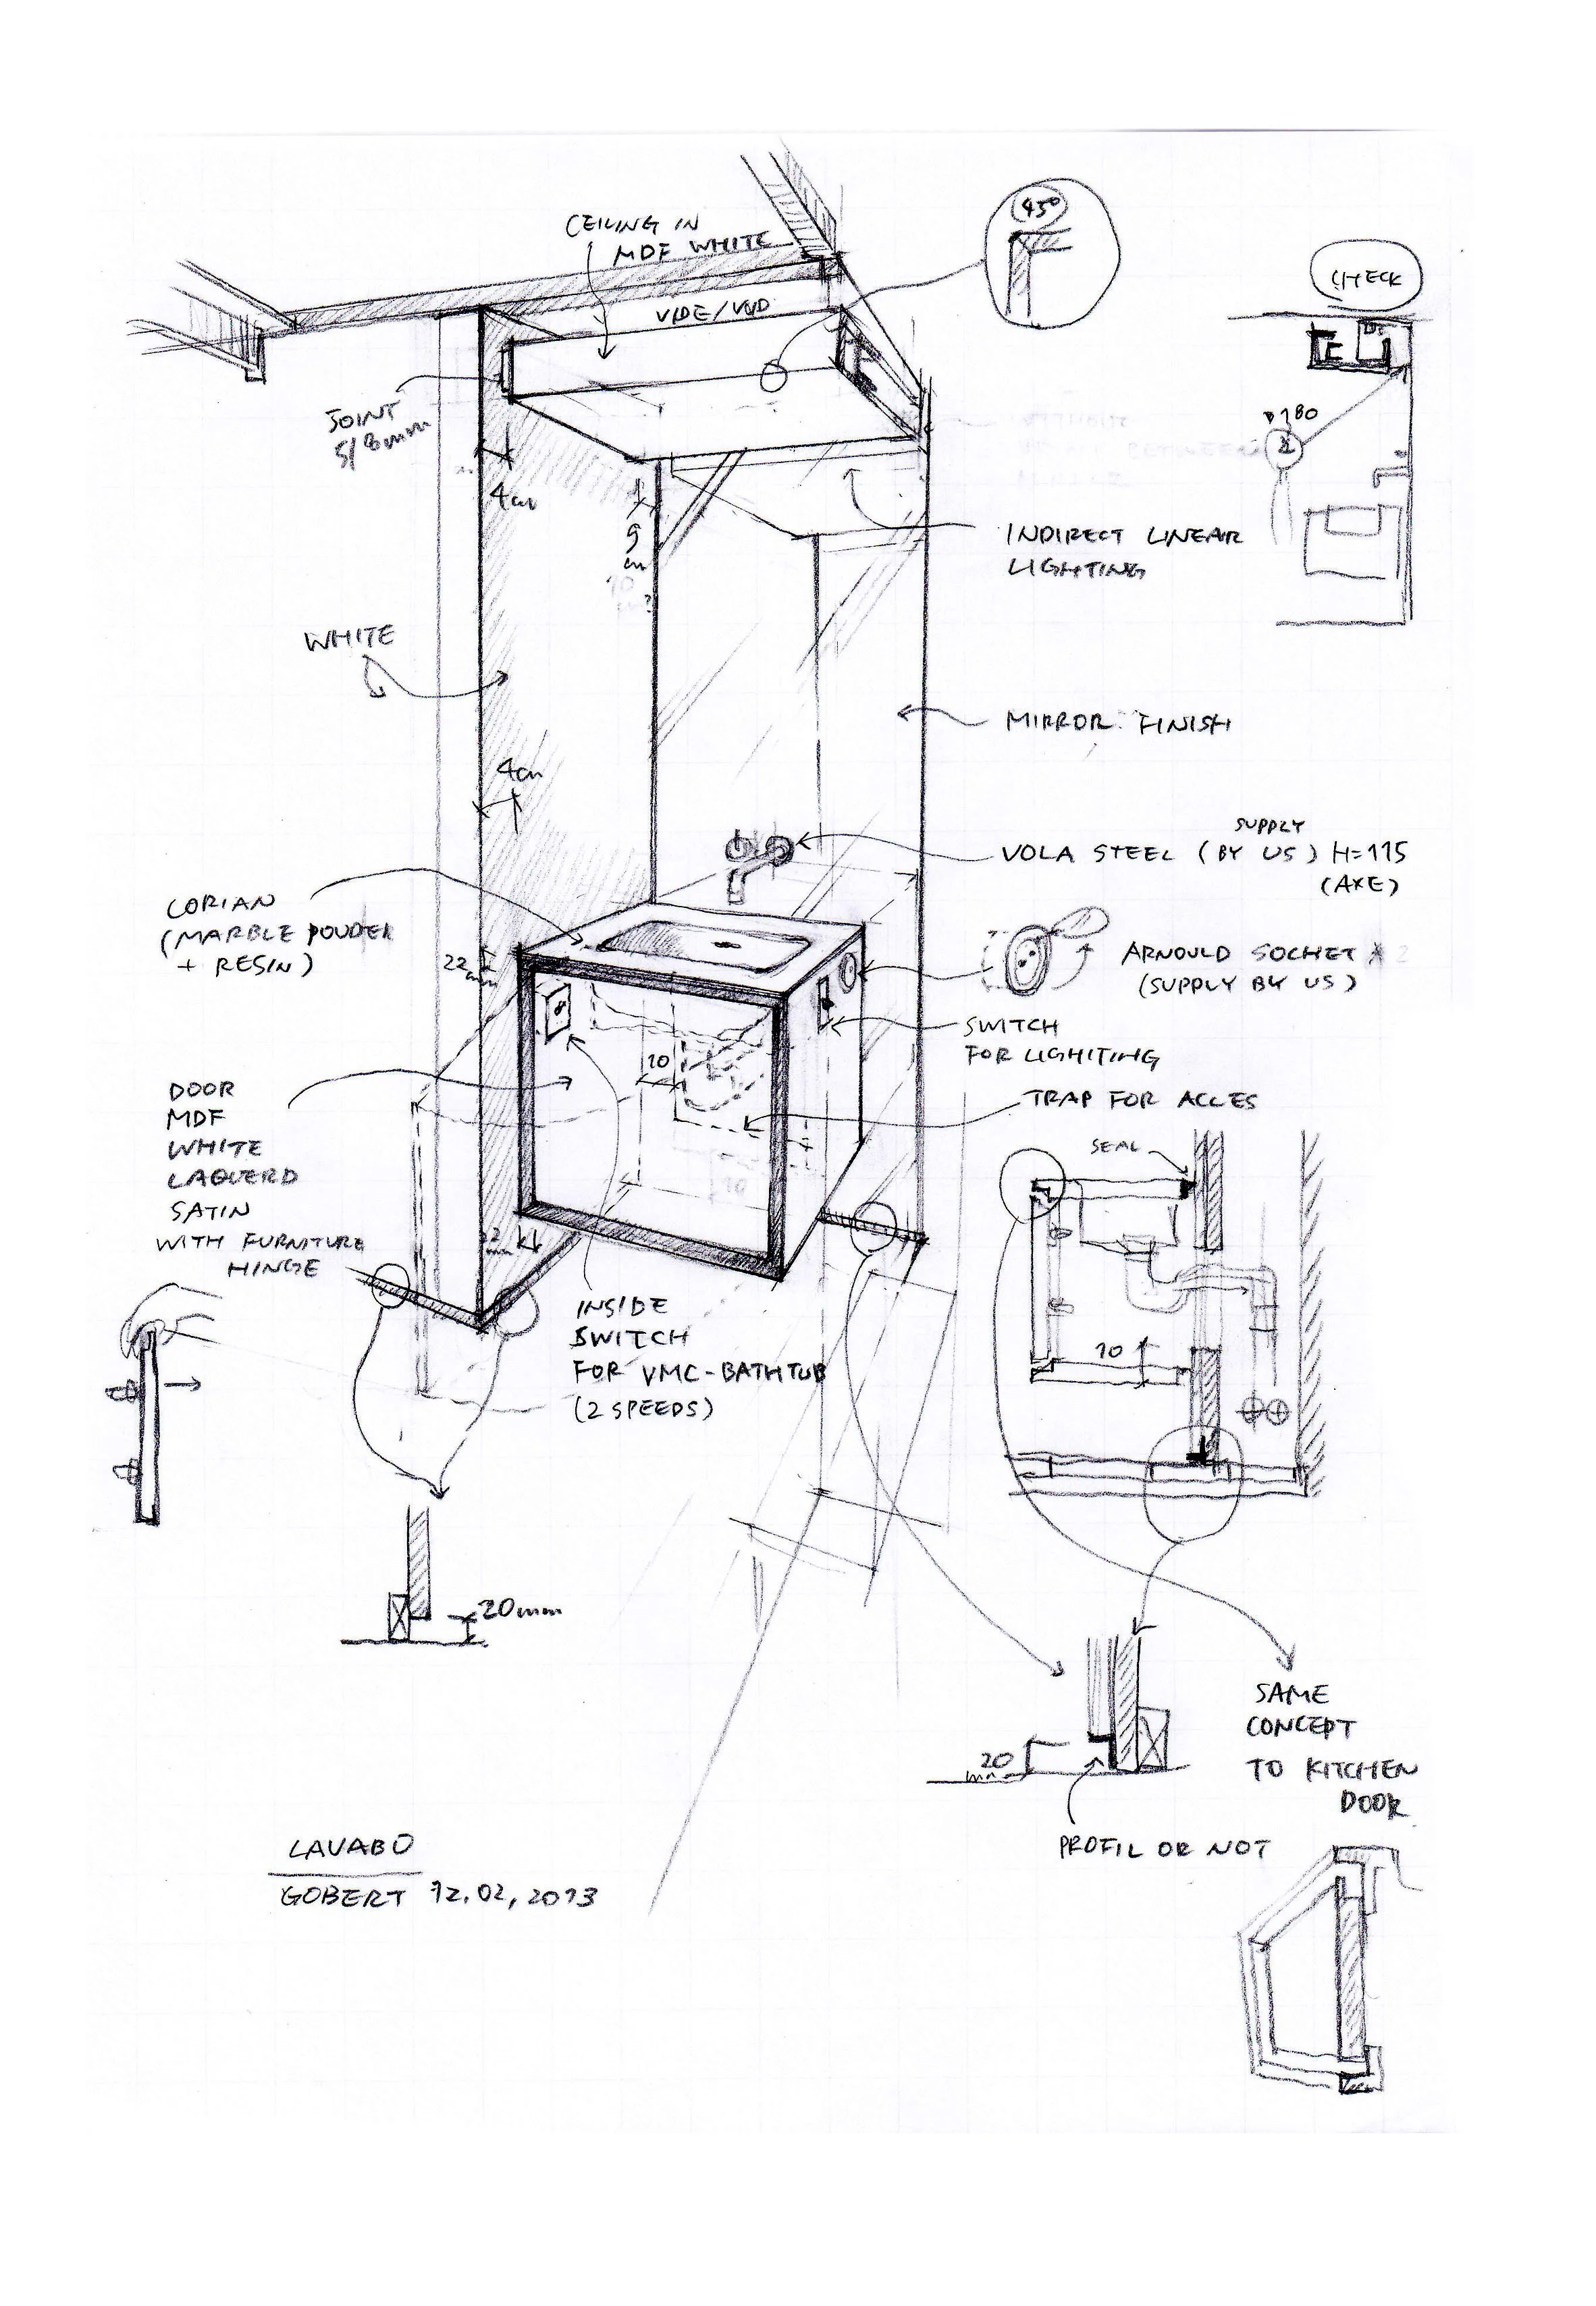 45°
CEILING IN
MDF WHITE
CHECK
VIDE/VOID
JOINT
5/8mm
180
4cm
9
cm
INDIRECT LINEAR
LIGHTING
WHITE
MIRROR FINISH
4cm
SUPPLY
VOLA STEEL (BY US) H=115
(AXE)
CORIAN
(MARBLE POUDER
+ RESIN)
22
mm
ARNOULD SOCHET × 2
(SUPPLY BY US)
SWITCH
FOR LIGHITING
10
TRAP FOR ACCES
DOOR
MDF
WHITE
LAQUERD
SATIN
WITH FURNITURE
HINGE
SEAL
10
22
mm
INSIDE
SWITCH
FOR VMC-BATHTUB
(2 SPEEDS)
10
20mm
SAME
CONCEPT
TO KITCHEN
DOOR
20
mm
PROFIL OR NOT
LAVABO
GOBERT 12.02,2013